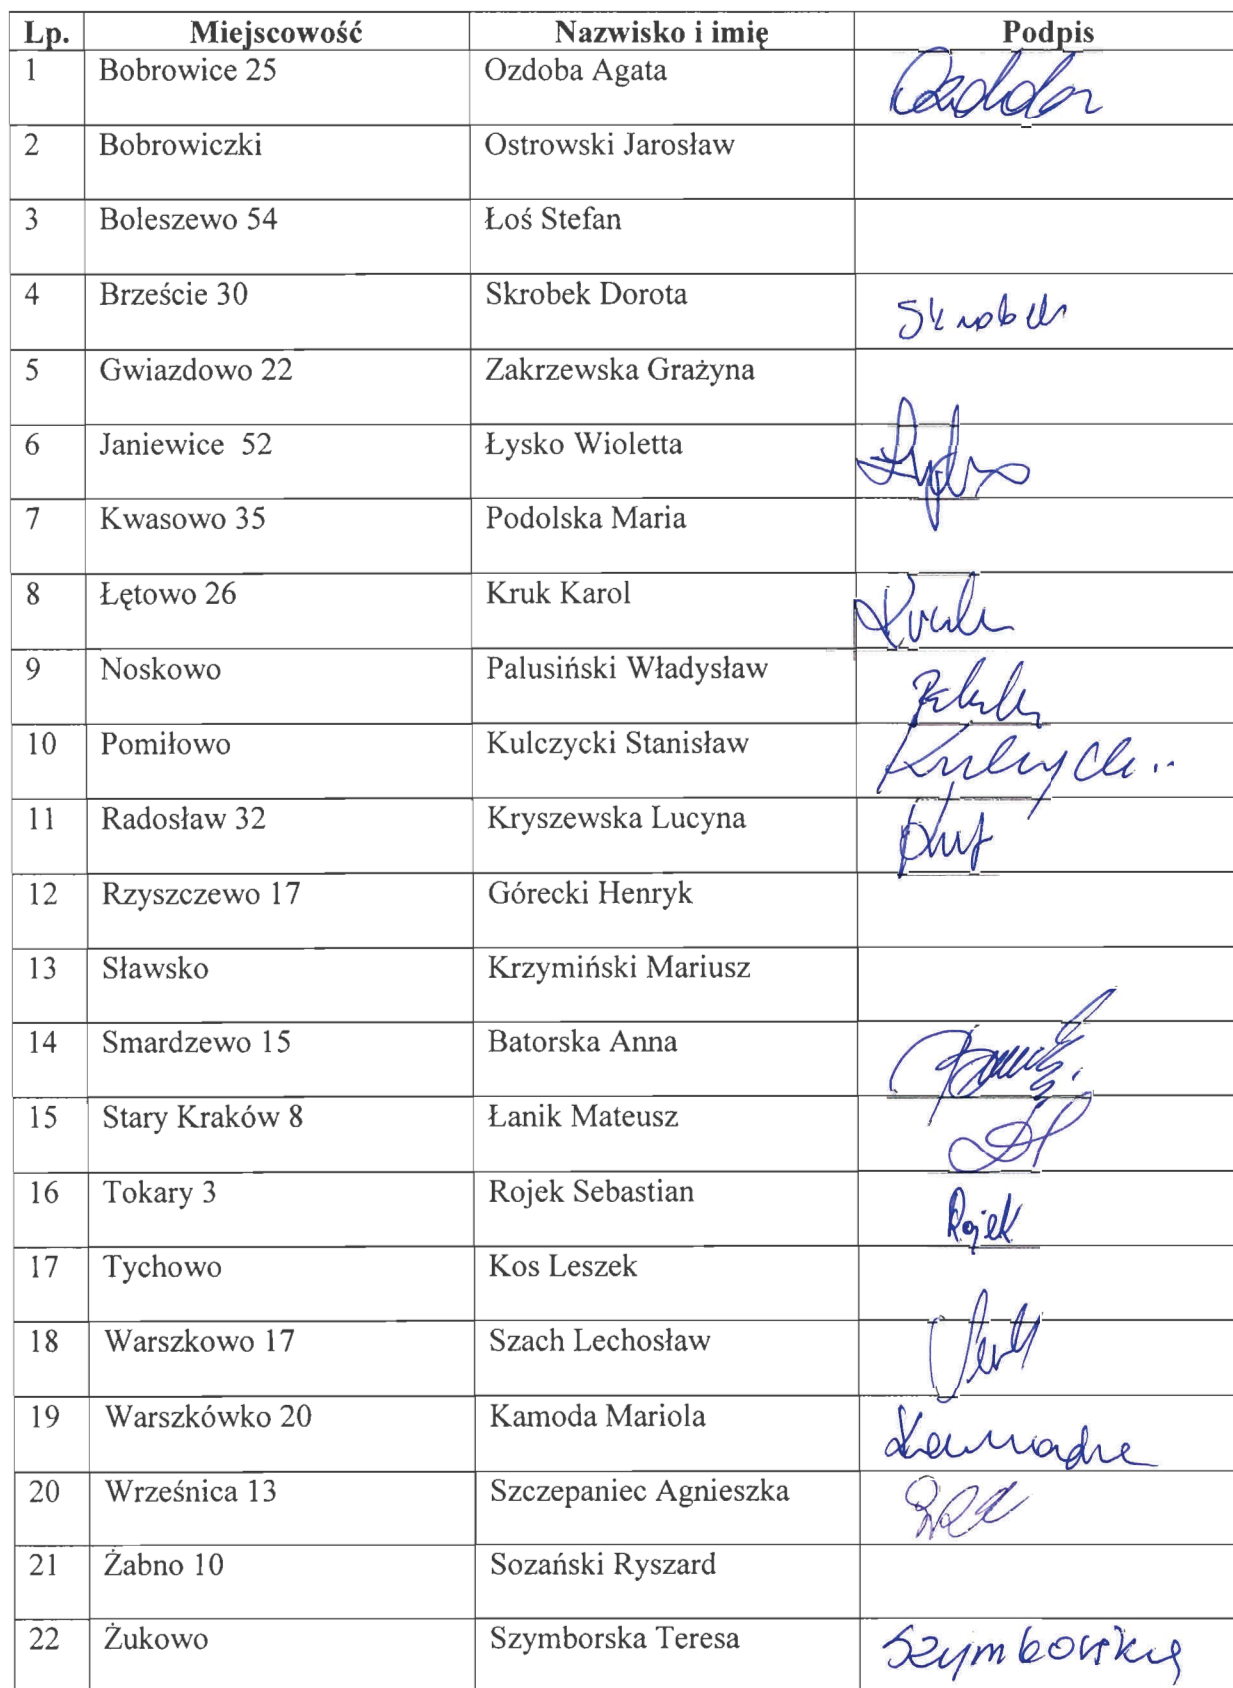 Lp. Miejscowość Nazwisko i imię Podpis
1 Bobrowice 25 Ozdoba Agata Ozdoba
2 Bobrowiczki Ostrowski Jarosław
3 Boleszewo 54 Łoś Stefan
4 Brzeście 30 Skrobek Dorota Skrobek
5 Gwiazdowo 22 Zakrzewska Grażyna
6 Janiewice 52 Łysko Wioletta
7 Kwasowo 35 Podolska Maria
8 Łętowo 26 Kruk Karol Kruk
9 Noskowo Palusiński Władysław
10 Pomiłowo Kulczycki Stanisław
11 Radosław 32 Kryszewska Lucyna
12 Rzyszczewo 17 Górecki Henryk
13 Sławsko Krzymiński Mariusz
14 Smardzewo 15 Batorska Anna
15 Stary Kraków 8 Łanik Mateusz
16 Tokary 3 Rojek Sebastian Rojek
17 Tychowo Kos Leszek
18 Warszkowo 17 Szach Lechosław
19 Warszkówko 20 Kamoda Mariola
20 Wrześnica 13 Szczepaniec Agnieszka
21 Żabno 10 Sozański Ryszard
22 Żukowo Szymborska Teresa Szymborska